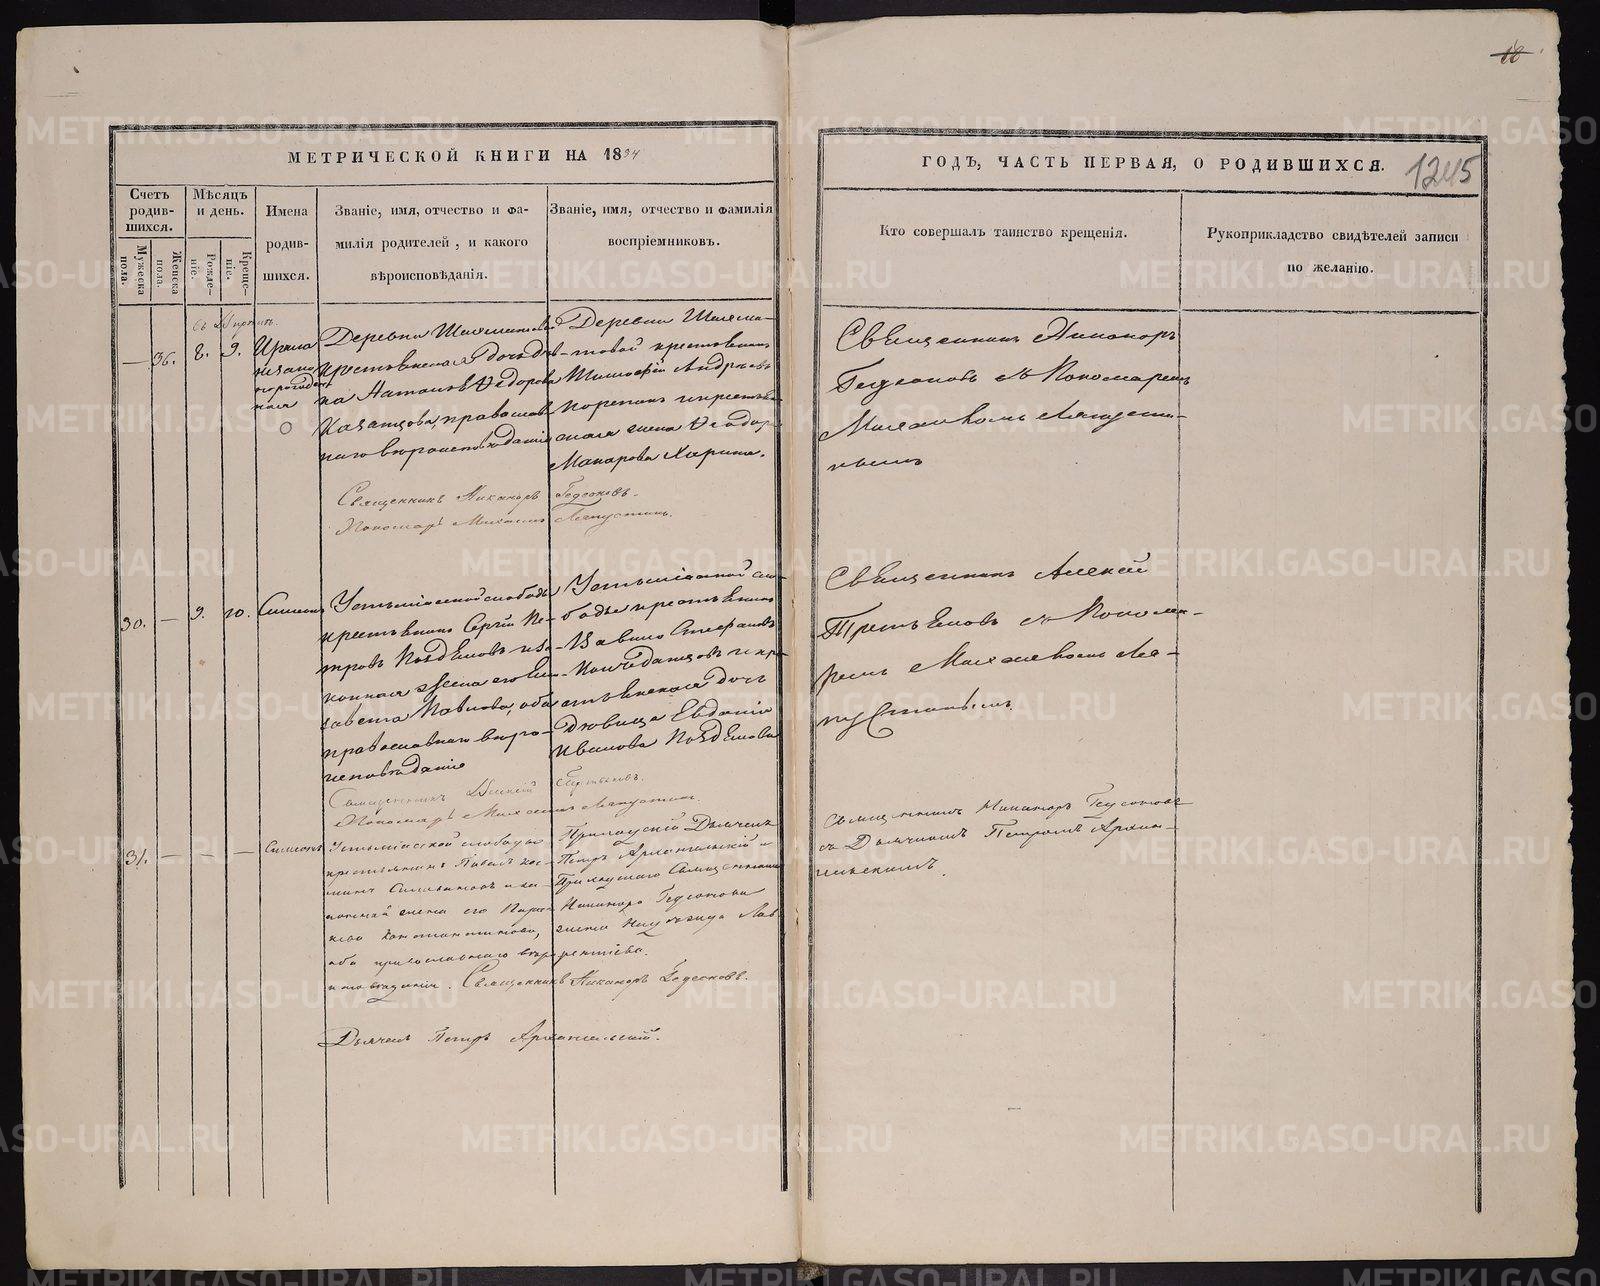 18
МЕТРИЧЕСКОЙ КНИГИ НА 1834
ГОДЪ, ЧАСТЬ ПЕРВАЯ, О РОДИВШИХСЯ.
1245
Счетъ родив-шихся.
Мужеска пола.
Женска пола.
Мѣсяцъ и день.
Рожде-ніе.
Креще-ніе.
Имена
родив-
шихся.
Званіе, имя, отчество и фа-
милія родителей, и какого
вѣроисповѣданія.
Званіе, имя, отчество и фамилія
воспріемниковъ.
Кто совершалъ таинство крещенія.
Рукоприкладство свидѣтелей записи
по желанію.
— 36. 8. 9.
Деревни
крестьянская дочь дѣв-
ка Наталья Ѳедорова
Казанцова, православ
наго вѣроисповѣданія
Деревни Шахма-
товой крестьянинъ
Тимофей Андреевъ
и крестьян
ская жена Ѳеодор
Макарова Харина.
Священникъ Никаноръ
Гедеоновъ съ Пономаремъ
Михаиломъ Ляпусти-
нымъ
Священникъ Никаноръ Гедеоновъ.
Пономарь Михаилъ Ляпустинъ.
30. — 9. 10. Симеонъ
Устьміаской слободы
крестьянинъ Сергій Пе-
тровъ Поздѣевъ и за-
конная жена его Ели-
завета Павлова, оба
православнаго вѣро-
исповѣданія
Устьміаской сло-
боды крестьянинъ
Вавило Стефановъ
и кре-
стьянская дочь
дѣвица Евдокія
Иванова Поздѣева
Священникъ Алексій
Третьяковъ съ Понома-
ремъ Михаиломъ Ля-
пустинымъ.
Священникъ Алексій Третьяковъ.
Пономарь Михаилъ Ляпустинъ.
31. — — — Симеонъ
Устьміаской слободы
крестьянинъ Павелъ
и за-
конная жена его Пара-
скева Константинова,
оба православнаго вѣро
исповѣданія.
Приходскій Дьячекъ
Петръ Архангельскій и
Приходскаго Священника
Никанора Гедеонова
жена Надежда Лав-
рентіева.
Священникъ Никаноръ Гедеоновъ
съ Дьячкомъ Петромъ Архан-
гельскимъ.
Священникъ Никаноръ Гедеоновъ.
Дьячекъ Петръ Архангельскій.
METRIKI.GASO-URAL.RU